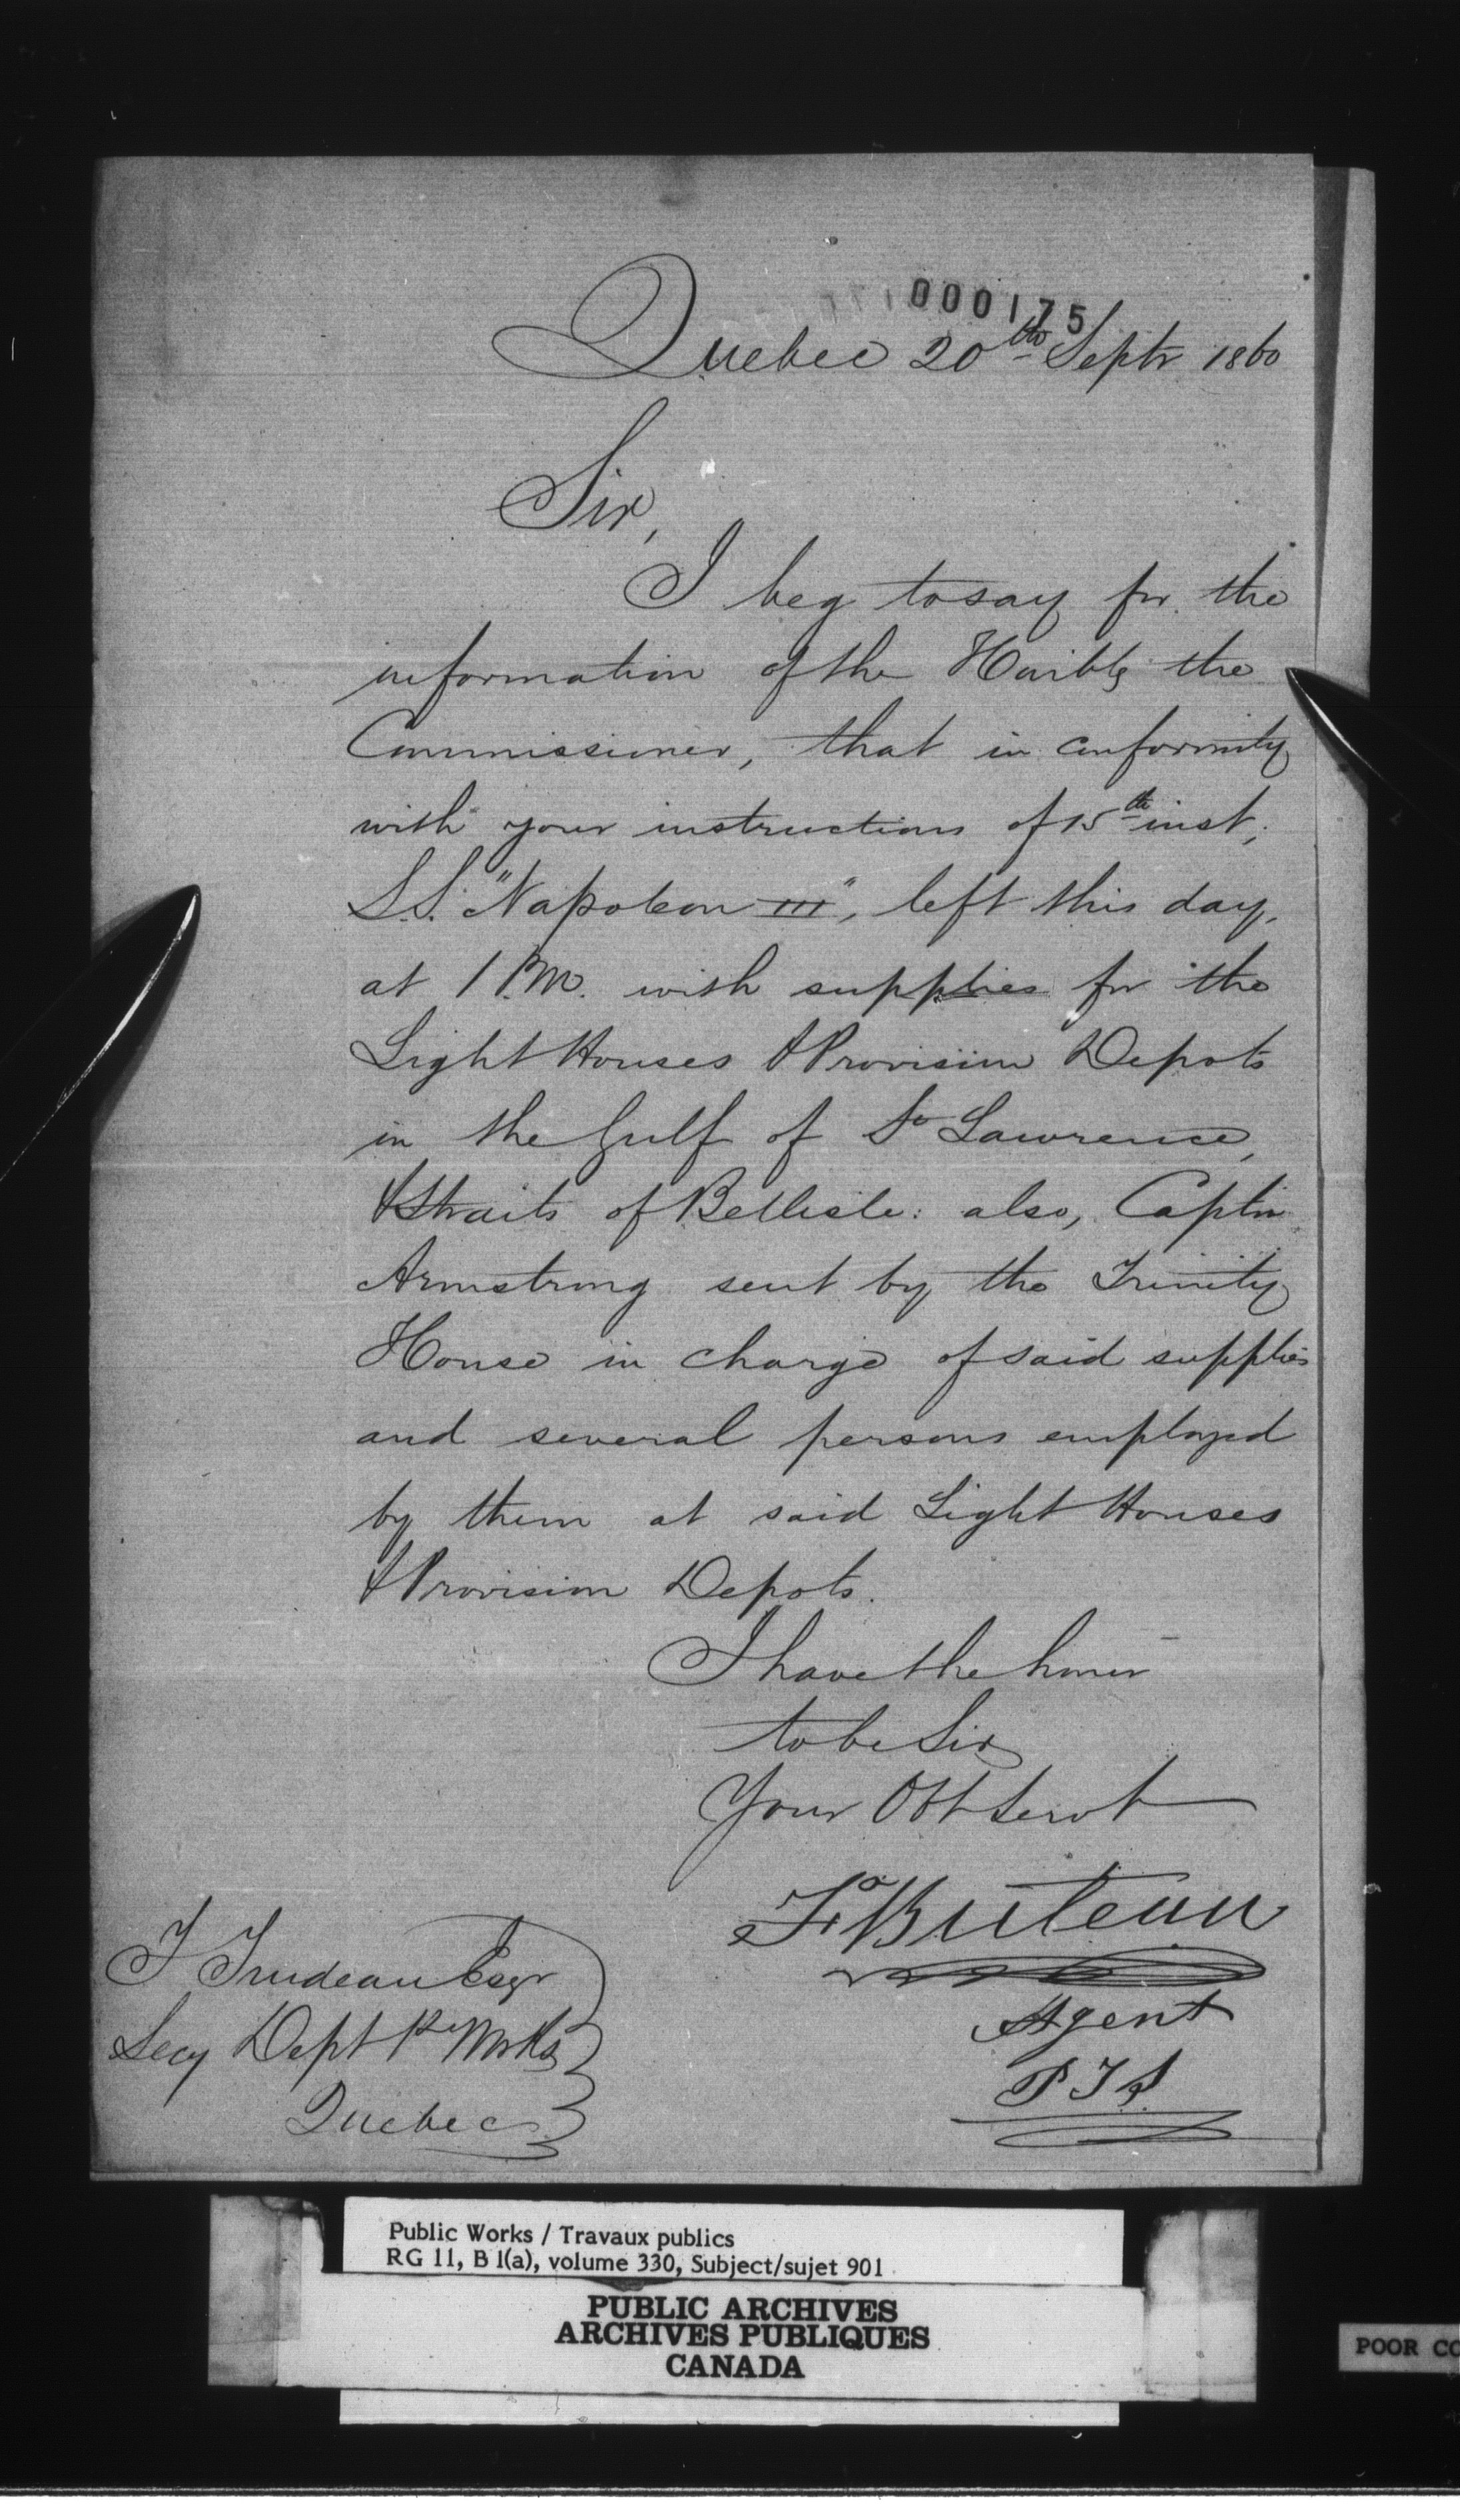 000175
Quebec 20th Septr 1860
Sir,
I beg to say for the
information of the Honble the
Commissioner, that in conformity
with your instructions of 15th inst,
S.S. "Napoleon III", left this day,
at 1 P.M. with supplies for the
Light Houses & Provision Depots
in the Gulf of St Lawrence,
& Straits of Bellisle: also, Captn
Armstrong sent by the Trinity
House in charge of said supplies
and several persons employed
by them at said Light Houses
& Provision Depots.
I have the honor
to be Sir
Your Obt Servt
F. Buteau
Agent
P T S
T Trudeau Esqr
Secy Dept Pc Wrks
Quebec
Public Works / Travaux publics
RG 11, B 1(a), volume 330, Subject/sujet 901
PUBLIC ARCHIVES
ARCHIVES PUBLIQUES
CANADA
POOR CO